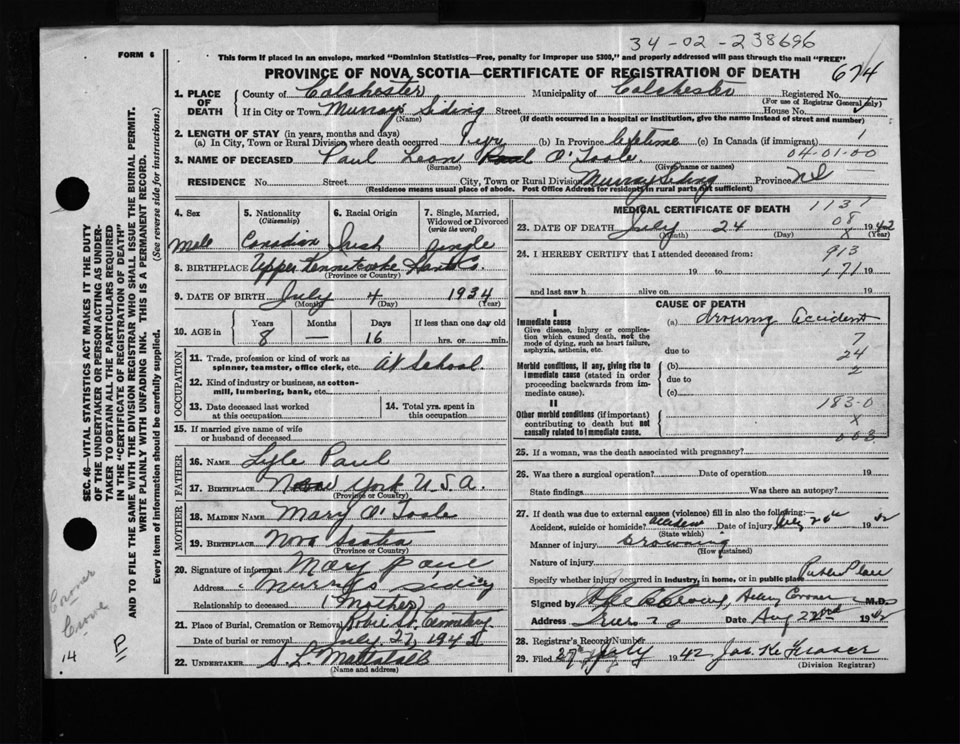 34-02-238696
FORM 6
This form if placed in an envelope, marked "Dominion Statistics—Free, penalty for improper use $300," and properly addressed will pass through the mail "FREE"
PROVINCE OF NOVA SCOTIA—CERTIFICATE OF REGISTRATION OF DEATH 674
1. PLACE OF DEATH County of Colchester Municipality of Colchester Registered No.
(For use of Registrar General only)
If in City or Town Murrays Siding Street House No.
(Name) (If death occurred in a hospital or institution, give the name instead of street and number)
2. LENGTH OF STAY (in years, months and days)
(a) In City, Town or Rural Division where death occurred 1 yr (b) In Province lifetime (c) In Canada (if immigrant) 1
04-01-00
3. NAME OF DECEASED Paul Leon O'Toole
(Surname) (Given name or names)
RESIDENCE No. Street City, Town or Rural Division Murray Siding Province NS
(Residence means usual place of abode. Post Office Address for residents in rural parts not sufficient)
4. Sex 5. Nationality (Citizenship) 6. Racial Origin 7. Single, Married, Widowed or Divorced (write the word)
Male Canadian Irish Single
8. BIRTHPLACE Upper Kennetcooke Hants Co.
(Province or Country)
9. DATE OF BIRTH July 4 1934
(Month) (Day) (Year)
10. AGE in Years Months Days If less than one day old
8 — 16 hrs. or min.
OCCUPATION
11. Trade, profession or kind of work as spinner, teamster, office clerk, etc. At School
12. Kind of industry or business, as cotton-mill, lumbering, bank, etc.
13. Date deceased last worked at this occupation 14. Total yrs. spent in this occupation
15. If married give name of wife or husband of deceased
FATHER
16. NAME Lyle Paul
17. BIRTHPLACE New York U.S.A.
(Province or Country)
MOTHER
18. MAIDEN NAME Mary O'Toole
19. BIRTHPLACE Nova Scotia
(Province or Country)
20. Signature of informant Mary Paul
Address Murrays Siding
Relationship to deceased (Mother)
21. Place of Burial, Cremation or Removal Robie St. Cemetery
Date of burial or removal July 27, 1942
22. UNDERTAKER S. L. Mattatall
(Name and address)
MEDICAL CERTIFICATE OF DEATH 1131
08
23. DATE OF DEATH July 24 1942
(Month) (Day) X (Year)
24. I HEREBY CERTIFY that I attended deceased from: 913
19 to 171 19
and last saw h alive on 19
CAUSE OF DEATH
I
Immediate cause
Give disease, injury or complication which caused death, not the mode of dying, such as heart failure, asphyxia, asthenia, etc.
(a) drowning accident
7
due to 24
Morbid conditions, if any, giving rise to immediate cause (stated in order proceeding backwards from immediate cause).
(b) 2
due to
(c)
183-0
II
Other morbid conditions (if important) contributing to death but not causally related to immediate cause.
X
003
25. If a woman, was the death associated with pregnancy?
26. Was there a surgical operation? Date of operation 19
State findings Was there an autopsy?
27. If death was due to external causes (violence) fill in also the following:
Accident, suicide or homicide? accident Date of injury July 24th 1942
(State which)
Manner of injury Drowning
(How sustained)
Nature of injury
Specify whether injury occurred in industry, in home, or in public place Public Place
Signed by Coroner M.D.
Address Truro N S Date Aug 22nd 1942
28. Registrar's Record Number
29. Filed 27th July 1942 Jas. K. Fraser
(Division Registrar)
SEC. 46—VITAL STATISTICS ACT MAKES IT THE DUTY
OF THE UNDERTAKER OR PERSON ACTING AS UNDER-
TAKER TO OBTAIN ALL THE PARTICULARS REQUIRED
IN THE "CERTIFICATE OF REGISTRATION OF DEATH"
AND TO FILE THE SAME WITH THE DIVISION REGISTRAR WHO SHALL ISSUE THE BURIAL PERMIT.
WRITE PLAINLY WITH UNFADING INK. THIS IS A PERMANENT RECORD.
Every item of information should be carefully supplied. (See reverse side for instructions.)
Coroner
Crowe
14
P